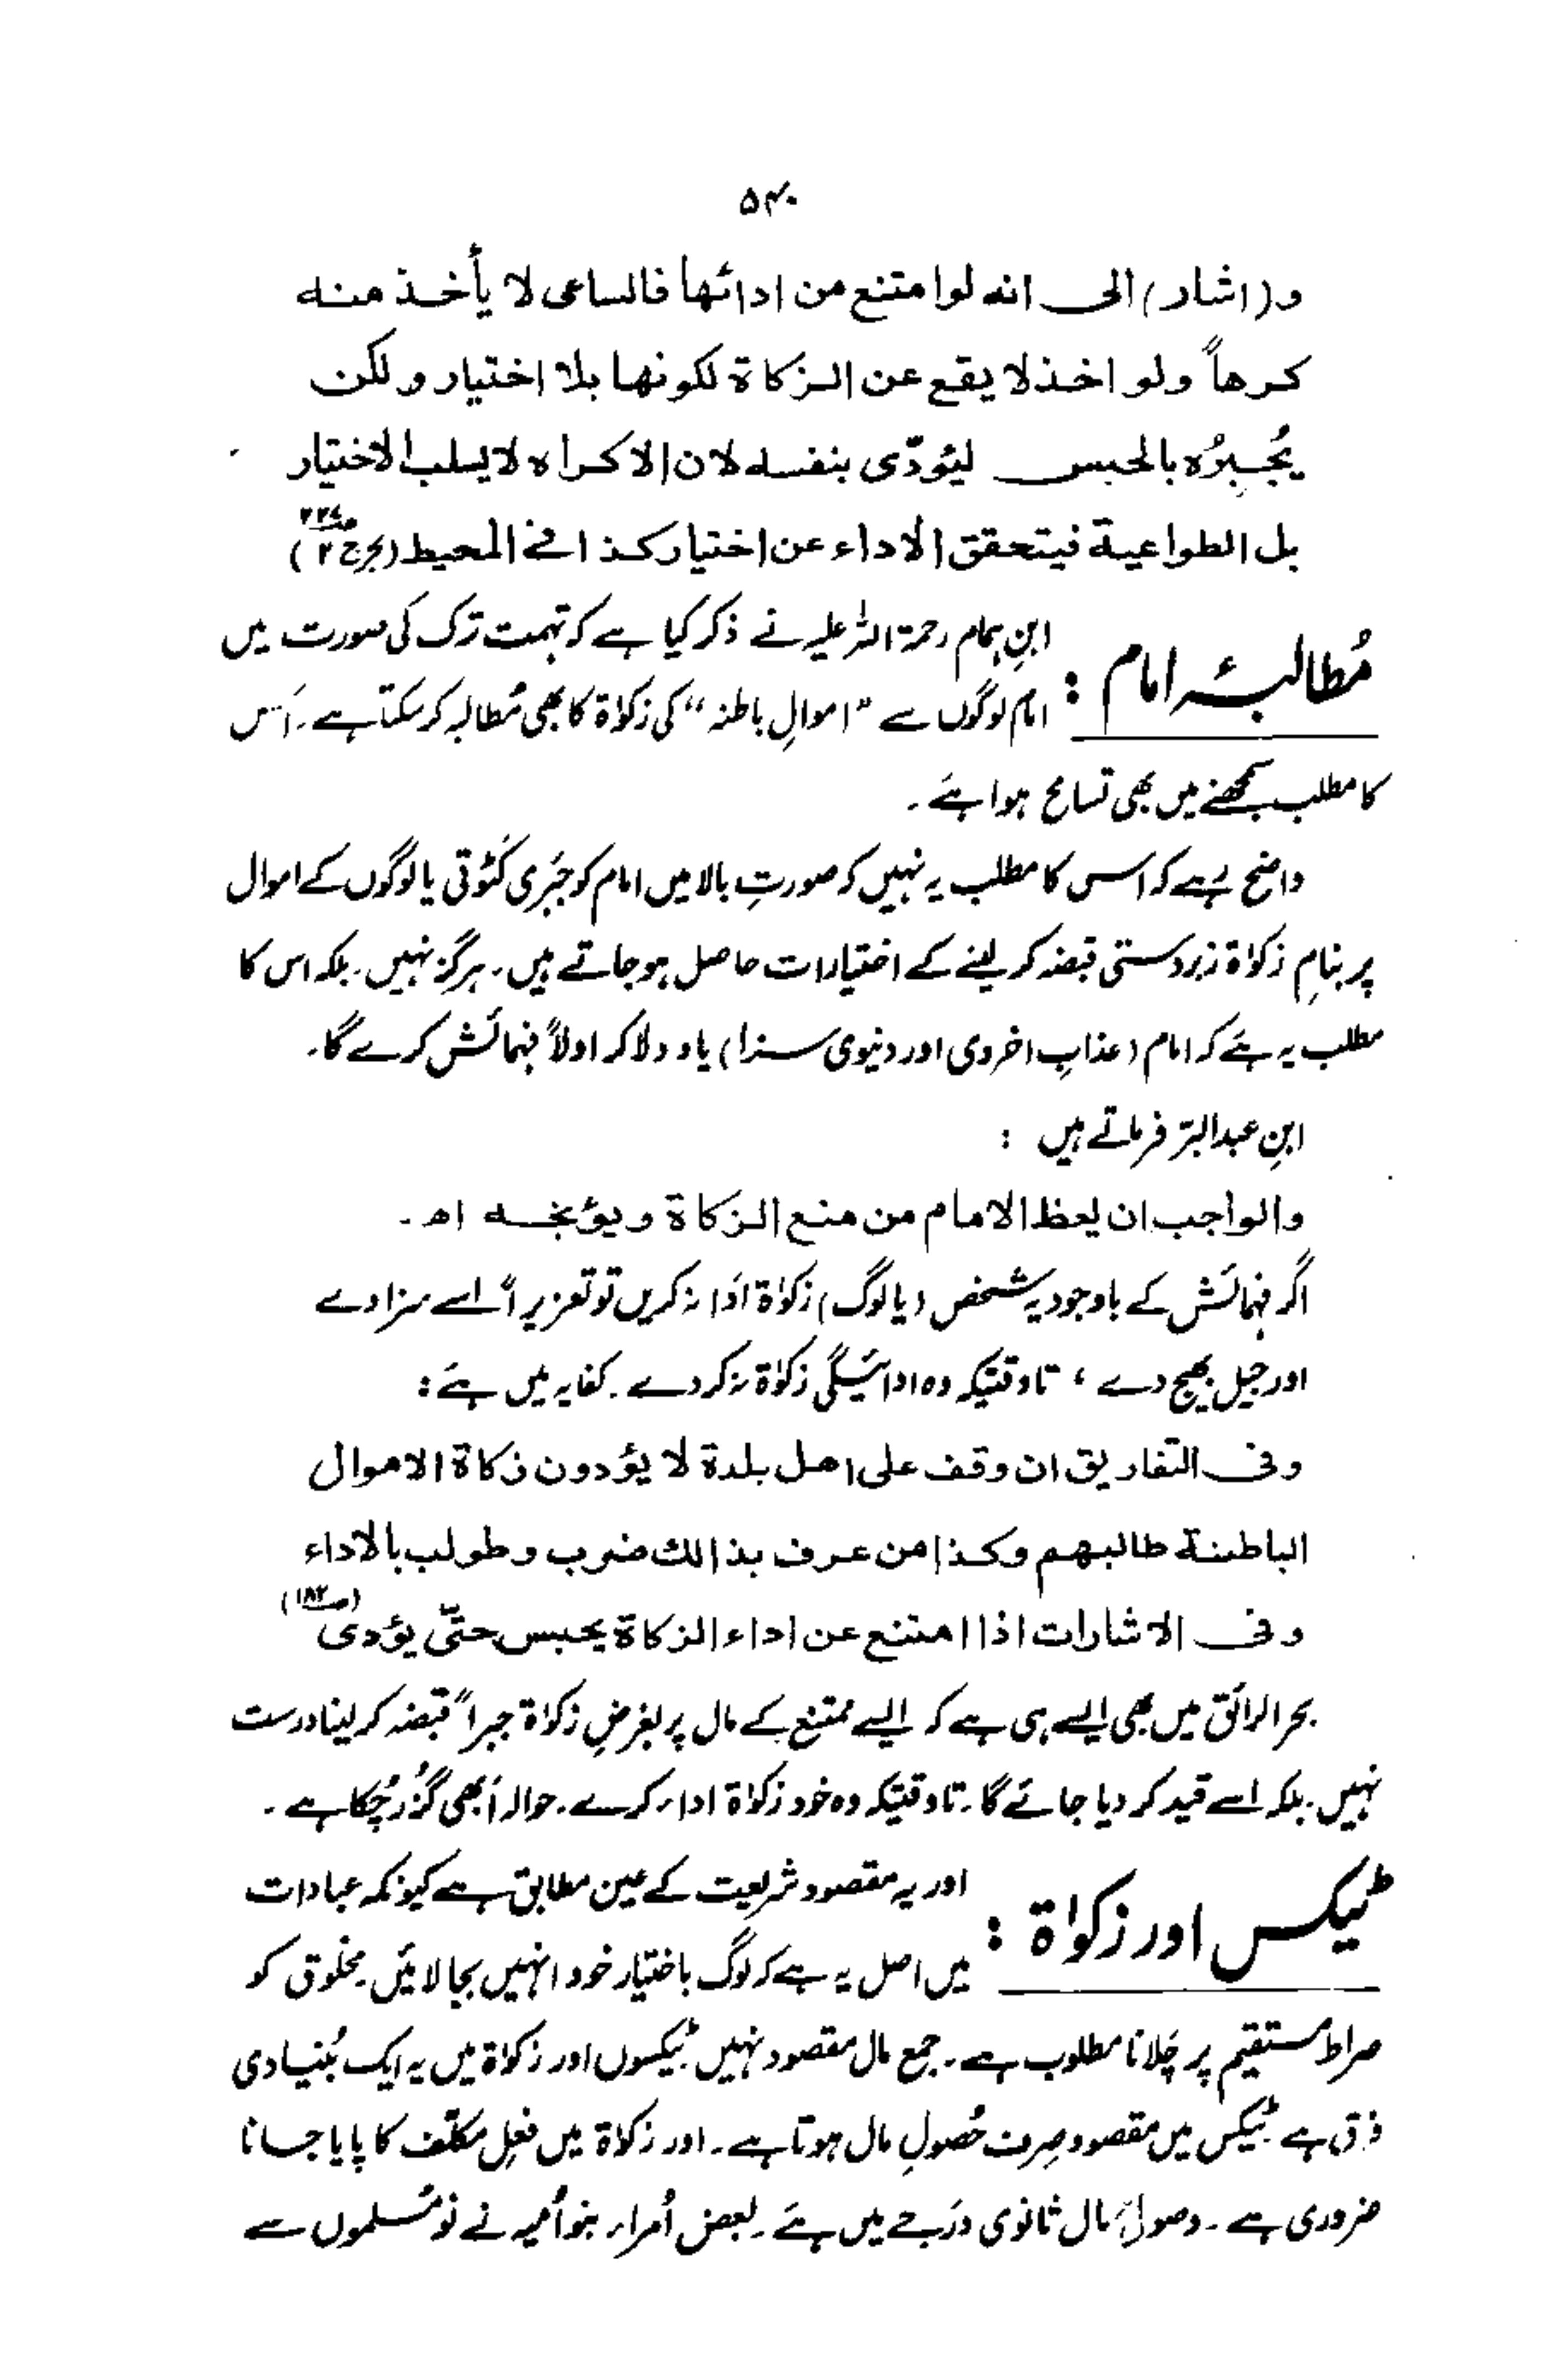 ۵۴۰
و(اشار) الى انه لو امتنع من ادائها فالساعى لا يأخذ منه
كرهاً ولو اخذ لا يقع عن الزكاة لكونها بلا اختيار ولكن
يُجبِرُه بالحبس ليُؤدّى بنفسه لان الاكراه لا يسلب الاختيار
بل الطواعية فيتحقق الاداء عن اختيار كذا فى المحيط (بحر ج ۲)
مُطالبۂ امام : ابنِ ہمام رحمۃ اللہ علیہ نے ذکر کیا ہے کہ تہمت ترک کی صورت میں
امام لوگوں سے "اموالِ باطنہ" کی زکوٰۃ کا بھی مُطالبہ کرسکتا ہے۔ اس
کا مطلب سمجھنے میں بھی تسامح ہوا ہے۔
واضح رہے کہ اس کا مطلب یہ نہیں کہ صورتِ بالا میں امام کو جَبَری کَٹوتی یا لوگوں کے اموال
پر بنامِ زکوٰۃ زبردستی قبضہ کرلینے کے اختیارات حاصل ہوجاتے ہیں۔ ہرگز نہیں۔ بلکہ اس کا
مطلب یہ ہے کہ امام (عذابِ اخروی اور دنیوی سزا) یاد دلا کر اولاً فہمائش کرے گا۔
ابنِ عبدالبَرّ فرماتے ہیں :
والواجب ان يعظ الامام من منع الزكاة ويؤبخه اھ۔
اگر فہمائش کے باوجود یہ شخص (یا لوگ) زکوٰۃ اَدا نہ کریں تو تعزیراً اسے سزا دے
اور جیل بھیج دے ، تاوقتیکہ وہ ادائیگی زکوٰۃ نہ کردے۔ کفایہ میں ہے :
وفى التفاريق ان وقف على اهل بلدة لا يؤدون زكاة الاموال
الباطنة طالبهم وكذا من عرف بذالك ضرب وطولب بالاداء
وفى الاشارات اذا امتنع عن اداء الزكاة يحبس حتّى يؤدى (ص۱۸۲)
بحر الرائق میں بھی ایسے ہی ہے کہ ایسے ممتنع کے مال پر بغرضِ زکوٰۃ جبراً قبضہ کرلینا درست
نہیں۔ بلکہ اسے قید کر دیا جائے گا۔ تاوقتیکہ وہ خود زکوٰۃ اداء کرے۔ حوالہ اَبھی گُزر چُکا ہے۔
ٹیکس اور زکوٰۃ : اور یہ مقصود شریعت کے عین مطابق ہے کیونکہ عبادات
میں اصل یہ ہے کہ لوگ باختیار خود انہیں بجا لائیں۔ مخلوق کو
صراطِ مستقیم پر چَلانا مطلوب ہے۔ جمع مال مقصود نہیں۔ ٹیکسوں اور زکوٰۃ میں یہ ایک بُنیادی
فرق ہے۔ ٹیکس میں مقصود صِرف حُصولِ مال ہوتا ہے۔ اور زکوٰۃ میں فعلِ مکلّف کا پایا جانا
ضروری ہے۔ وصولِ مال ثانوی دَرجے میں ہے۔ بعض اُمراء بنو اُمیہ نے نَو مُسلموں سے